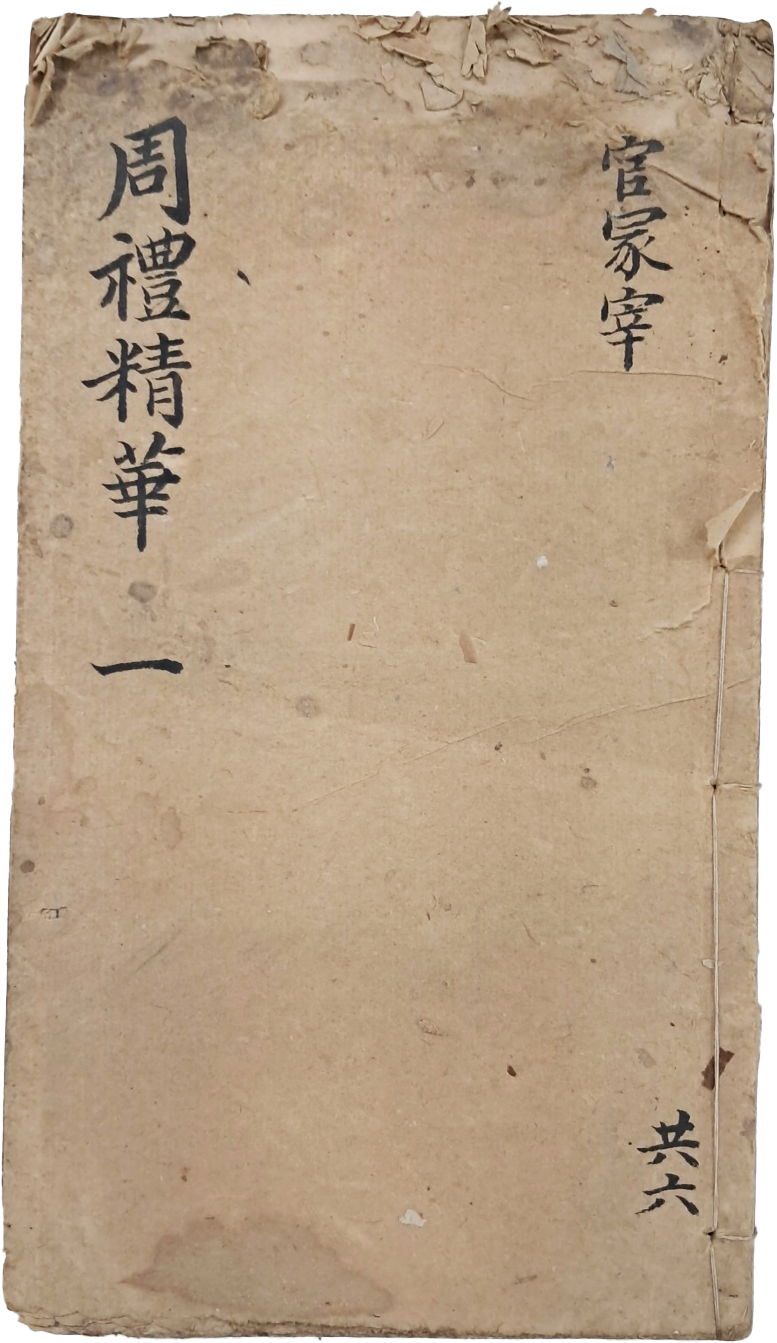 官冢宰
共六
周禮精華 一